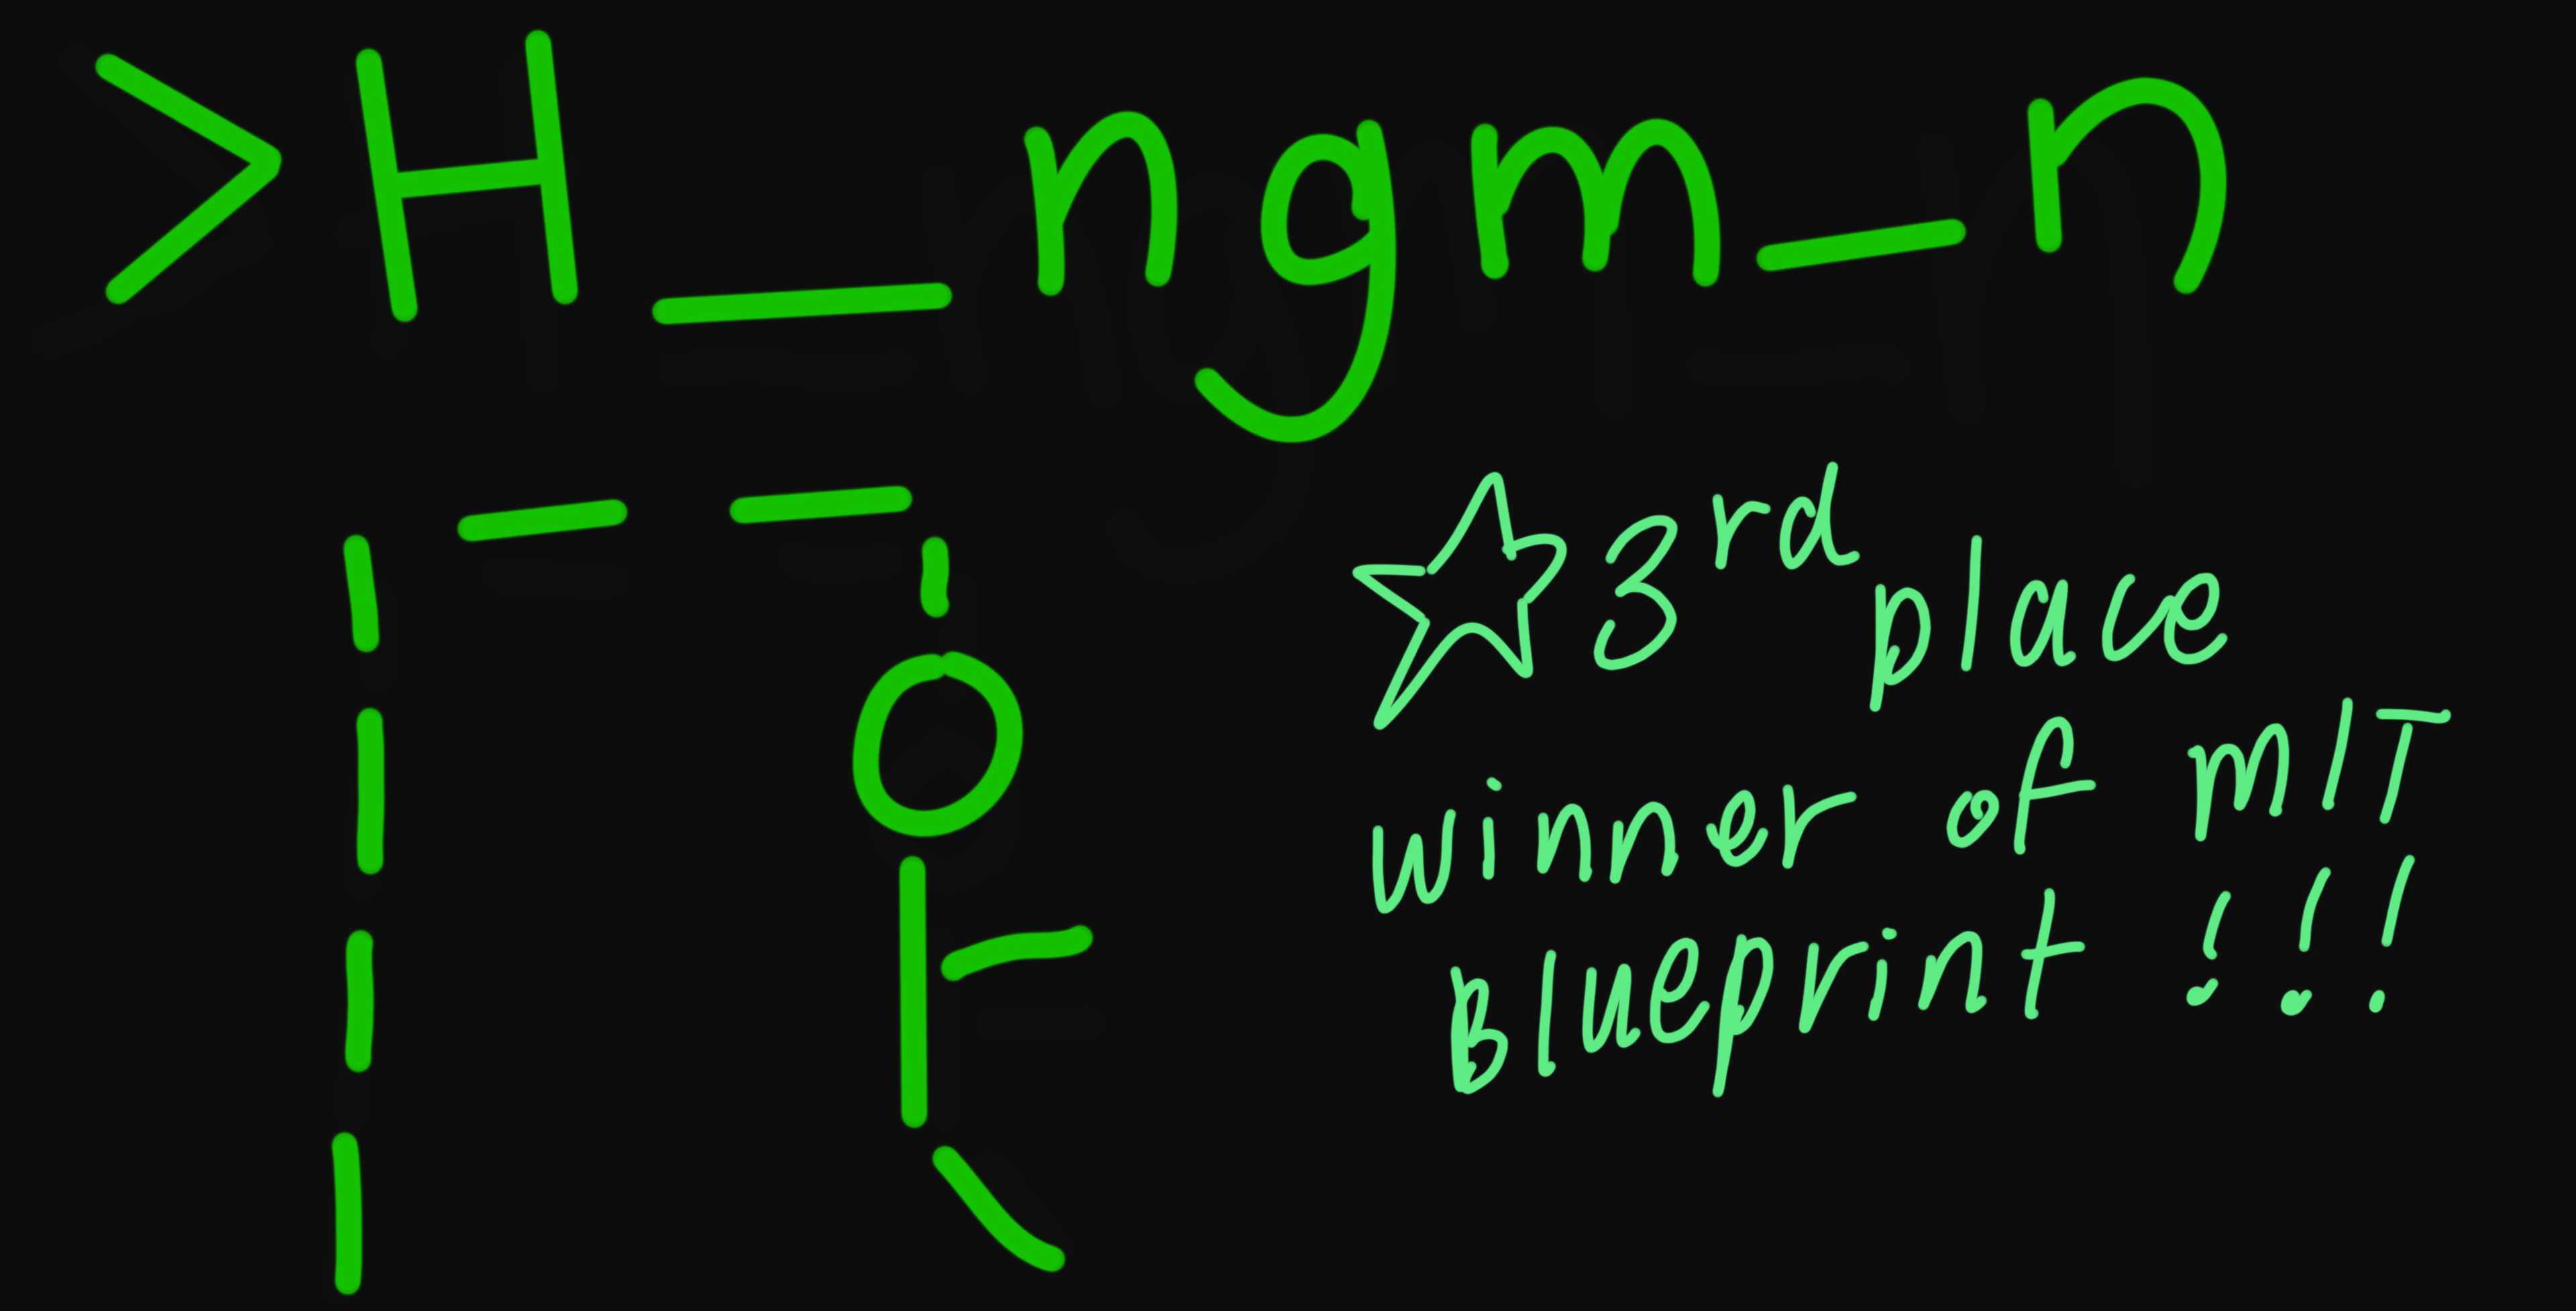 >H_ngm_n
☆ 3rd place
winner of MIT
Blueprint !!!